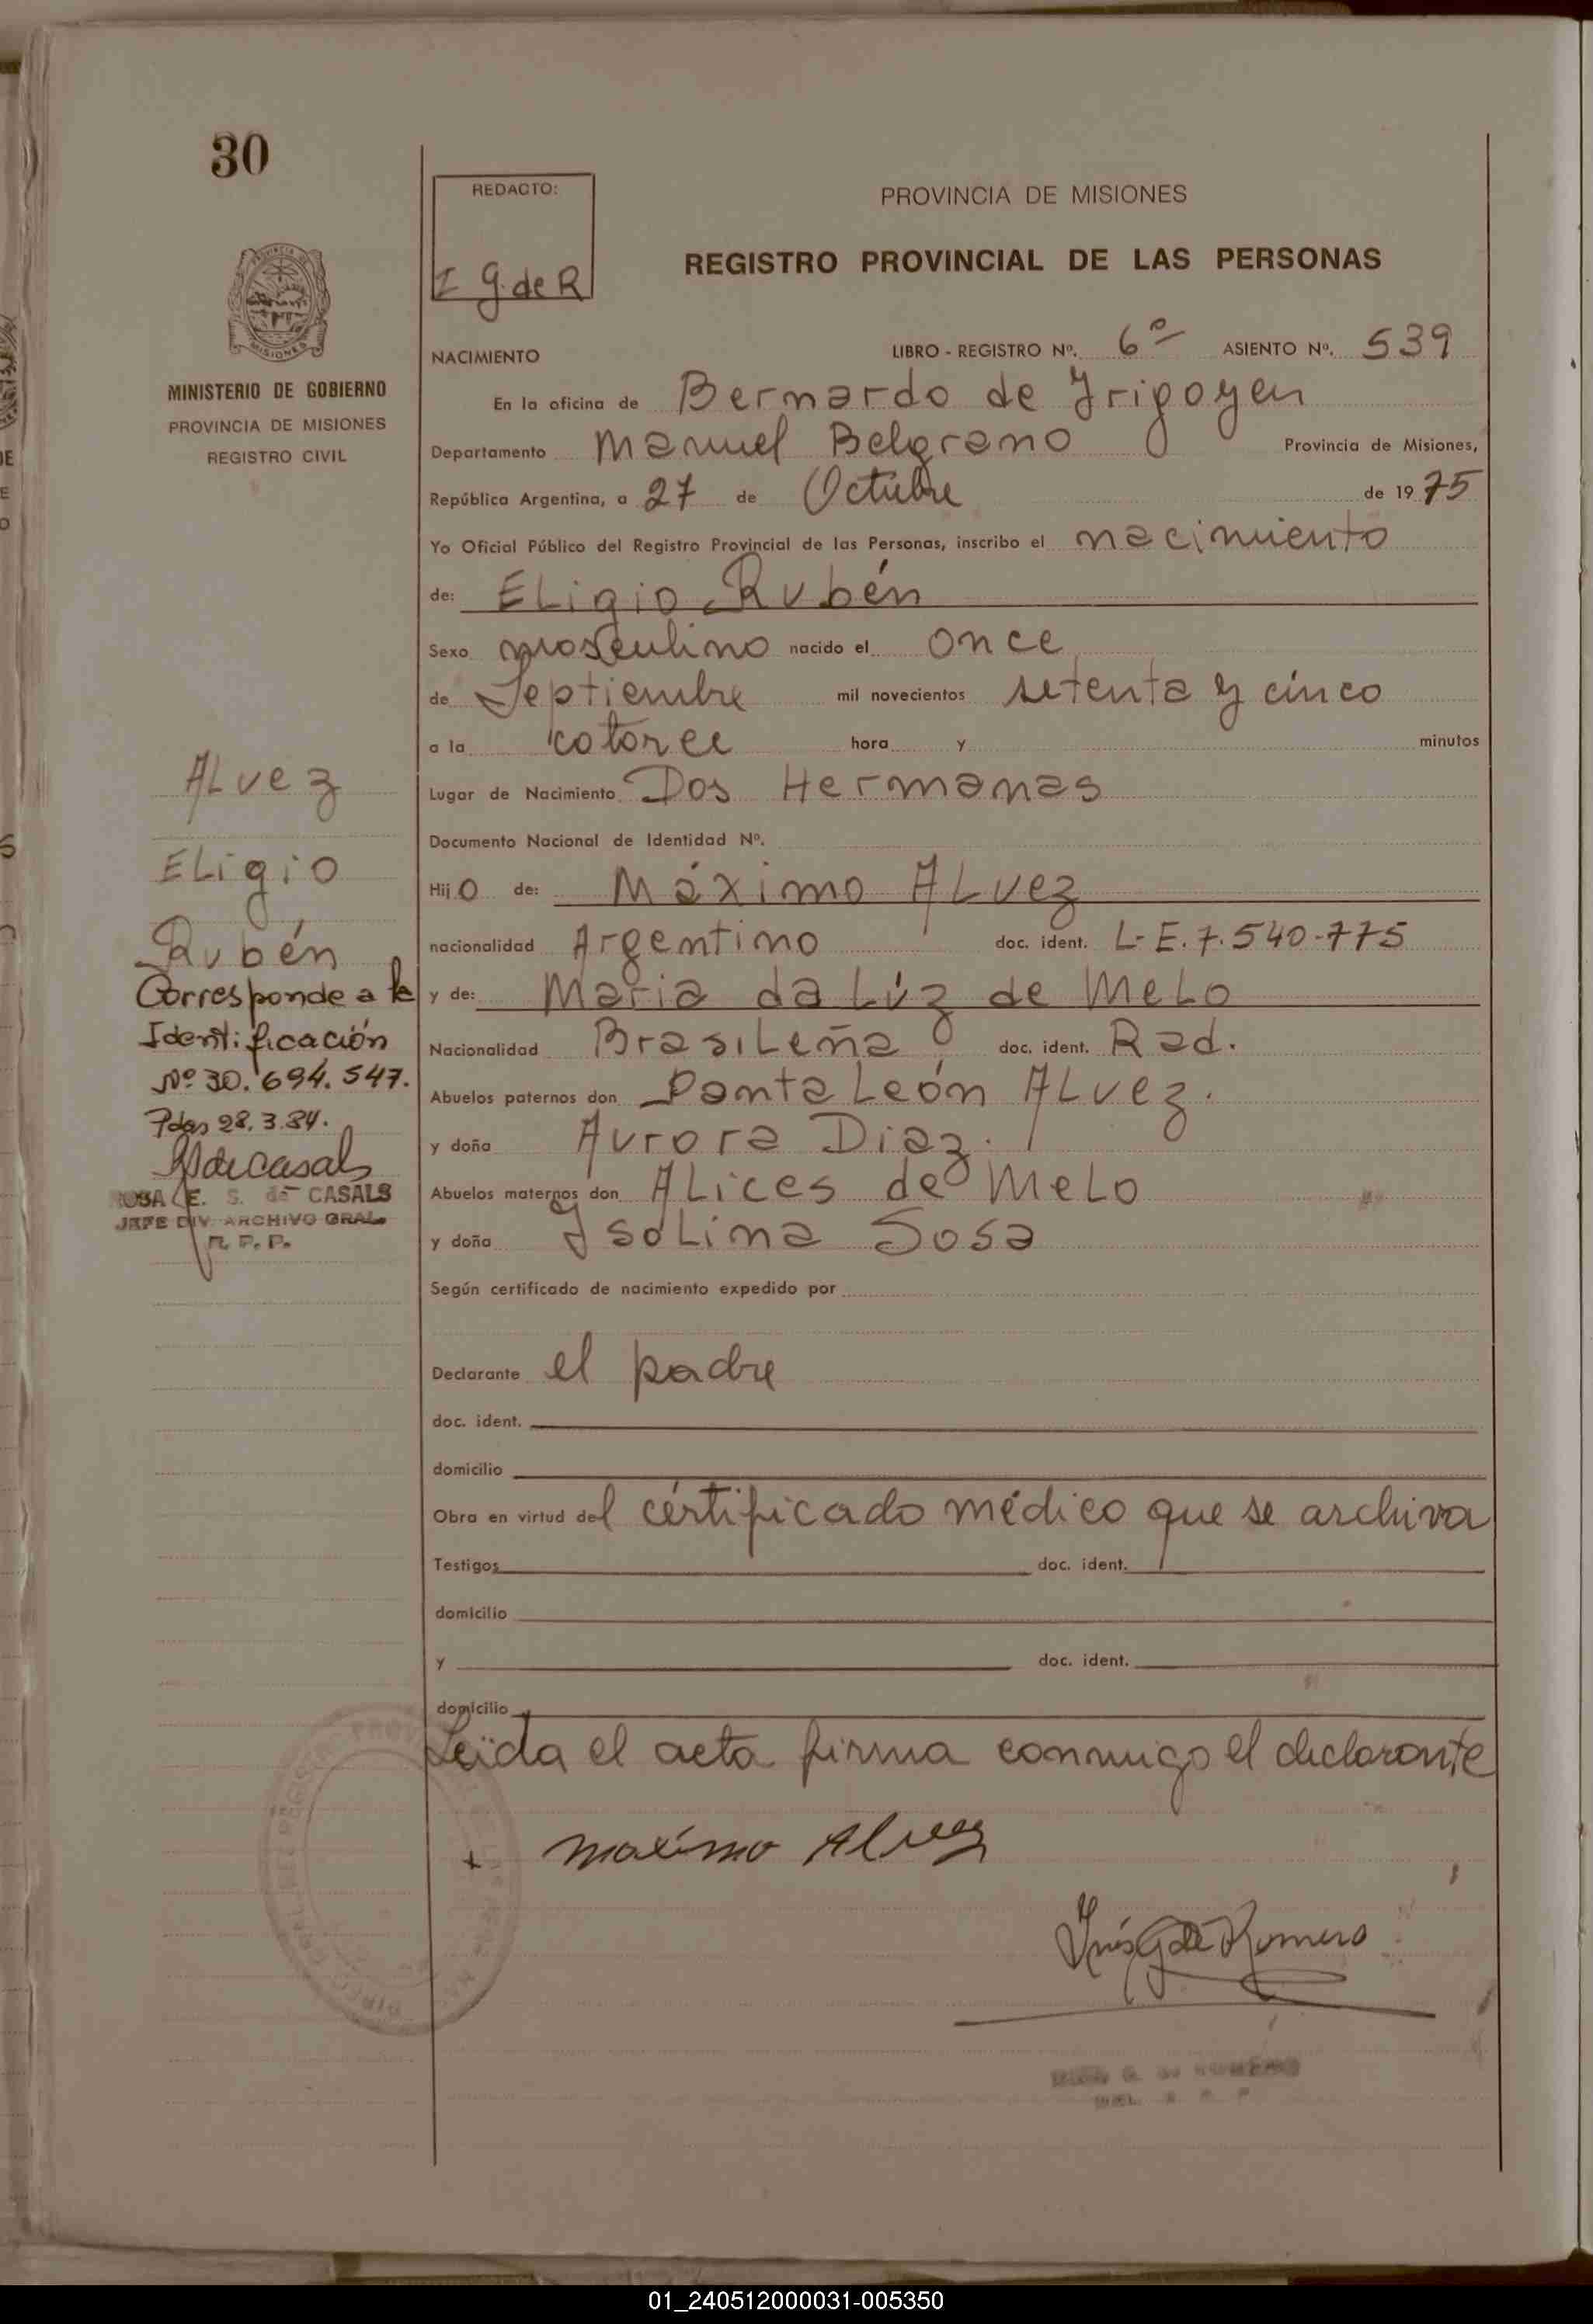 30
REDACTO:
I G. de R
MISIONES
MINISTERIO DE GOBIERNO
PROVINCIA DE MISIONES
REGISTRO CIVIL
PROVINCIA DE MISIONES
REGISTRO PROVINCIAL DE LAS PERSONAS
NACIMIENTO LIBRO - REGISTRO Nº. 6º ASIENTO Nº. 539
En la oficina de Bernardo de Irigoyen
Departamento Manuel Belgrano Provincia de Misiones,
República Argentina, a 27 de Octubre de 1975
Yo Oficial Público del Registro Provincial de las Personas, inscribo el nacimiento
de: Eligio Rubén
Sexo masculino nacido el once
de Septiembre mil novecientos setenta y cinco
a la catorce hora y minutos
Lugar de Nacimiento Dos Hermanas
Documento Nacional de Identidad Nº.
Hijo de: Máximo Alvez
nacionalidad Argentino doc. ident. L-E. 7.540-775
y de: Maria da Lúz de Melo
Nacionalidad Brasileña doc. ident. Rad.
Abuelos paternos don Pantaleón Alvez.
y doña Aurora Diaz.
Abuelos maternos don Alices de Melo
y doña Isolina Sosa
Según certificado de nacimiento expedido por
Declarante el padre
doc. ident.
domicilio
Obra en virtud del certificado médico que se archiva
Testigos doc. ident.
domicilio
y doc. ident.
domicilio
Leída el acta firma conmigo el declarante
+ maximo Alvez
Inés G de Romero
Alvez
Eligio
Rubén
Corresponde a la
Identificación
Nº 30.694.547.
Pdas 28.3.84.
ROSA E. S. de CASALS
JEFE DIV. ARCHIVO GRAL.
R. P. P.
01_240512000031-005350